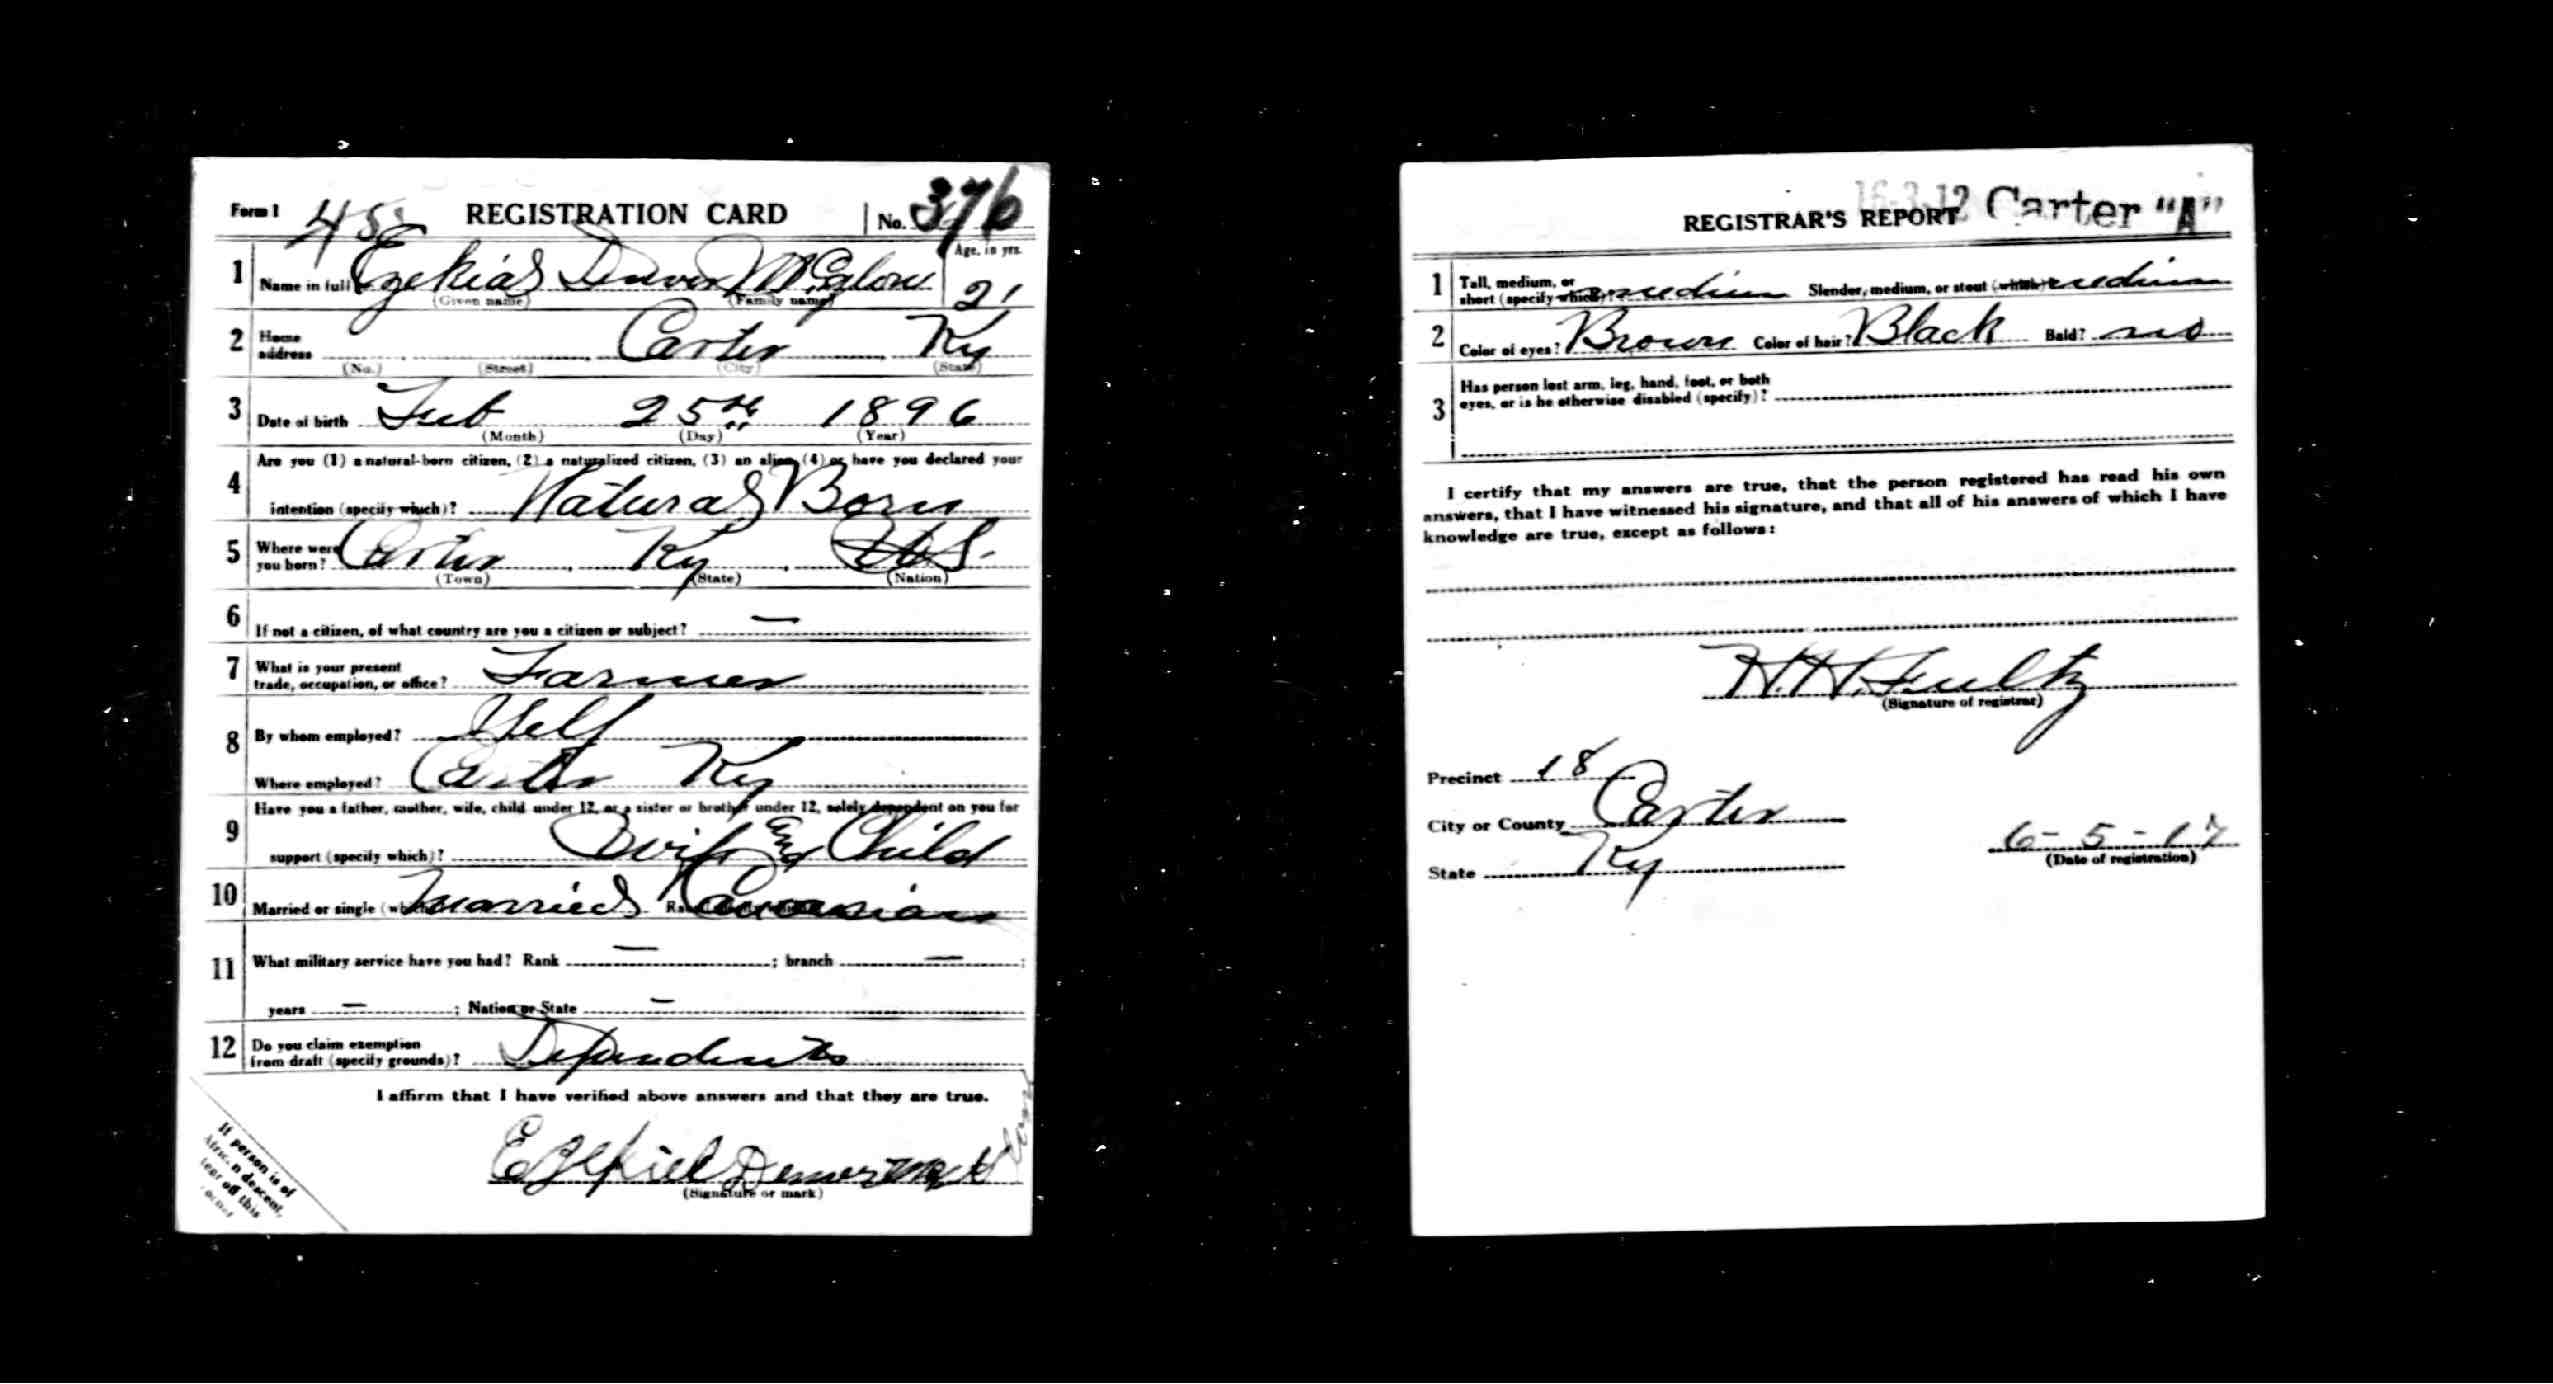 Form 1 458 REGISTRATION CARD No. 376
1 Name in full Ezekial Denver McGlone Age, in yrs. 21
(Given name) (Family name)
2 Home address Carter Ky
(No.) (Street) (City) (State)
3 Date of birth Feb 25th 1896
(Month) (Day) (Year)
4 Are you (1) a natural-born citizen, (2) a naturalized citizen, (3) an alien, (4) or have you declared your
intention (specify which)? Natural Born
5 Where were you born? Carter Ky U.S.
(Town) (State) (Nation)
6 If not a citizen, of what country are you a citizen or subject? —
7 What is your present
trade, occupation, or office? Farmer
8 By whom employed? Self
Where employed? Carter Ky
9 Have you a father, mother, wife, child under 12, or a sister or brother under 12, solely dependent on you for
support (specify which)? Wife & Child
10 Married or single (which)? Married Caucasian
11 What military service have you had? Rank — ; branch — ;
years — ; Nation or State —
12 Do you claim exemption
from draft (specify grounds)? Dependents
I affirm that I have verified above answers and that they are true.
Ezekiel Denver
(Signature or mark)
If person is of
African descent,
tear off this
corner
16-3-12 Carter "A"
REGISTRAR'S REPORT
1 Tall, medium, or
short (specify which)? medium Slender, medium, or stout (which)? medium
2 Color of eyes? Brown Color of hair? Black Bald? no
3 Has person lost arm, leg, hand, foot, or both
eyes, or is he otherwise disabled (specify)?
I certify that my answers are true, that the person registered has read his own
answers, that I have witnessed his signature, and that all of his answers of which I have
knowledge are true, except as follows:
H. H. Fultz
(Signature of registrar)
Precinct 18
City or County Carter
State Ky
6-5-17
(Date of registration)